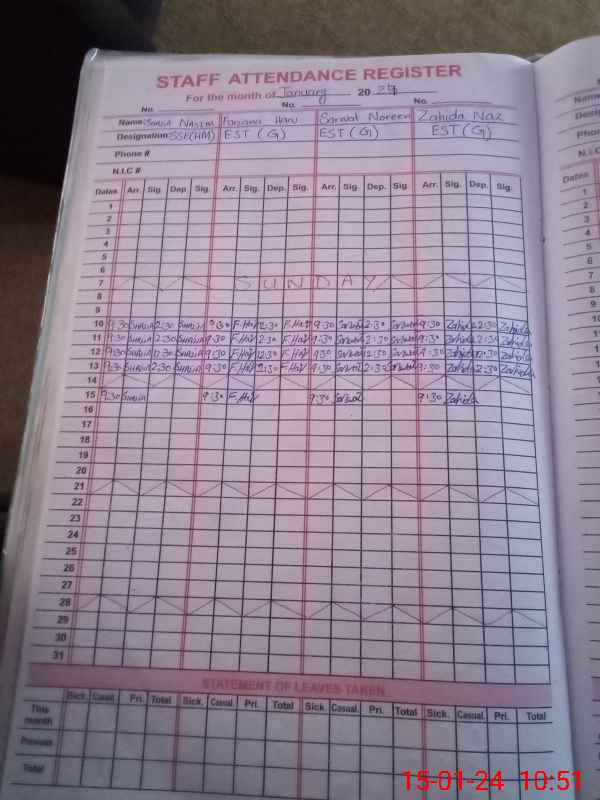 STAFF ATTENDANCE REGISTER
For the month of January 2024
No. No. No.
Name: Shazia Nasim Farzana Haru Sarwat Noreen Zahida Naz
Designation: SSE(HM) EST (G) EST (G) EST (G)
Phone #
N.I.C #
Dates Arr. Sig. Dep. Sig. Arr. Sig. Dep. Sig. Arr. Sig. Dep. Sig. Arr. Sig. Dep. Sig.
1
2
3
4
5
6
7 SUNDAY
8
9
10 9:30 2:30 9:30 2:30 F.Har 9:30 Sarwat 2:30 Sarwat 9:30 Zahida 2:30 Zahida
11 9:30 2:30 9:30 F.Har 2:30 F.Har 9:30 Sarwat 2:30 Sarwat 9:30 Zahida 2:30 Zahida
12 9:30 9:30 F.Har 12:30 F.Har 9:30 Sarwat 12:30 Sarwat 9:30 Zahida 12:30 Zahida
13 9:30 2:30 9:30 F.Har 2:30 F.Har 9:30 Sarwat 2:30 Sarwat 9:30 Zahida 2:30 Zahida
14
15 9:30 9:30 F.Har 9:30 Sarwat 9:30 Zahida
16
17
18
19
20
21
22
23
24
25
26
27
28
29
30
31
STATEMENT OF LEAVES TAKEN
Sick. Casual. Pri. Total Sick. Casual. Pri. Total Sick. Casual. Pri. Total Sick. Casual. Pri. Total
This month
Previous
Total
15-01-24 10:51